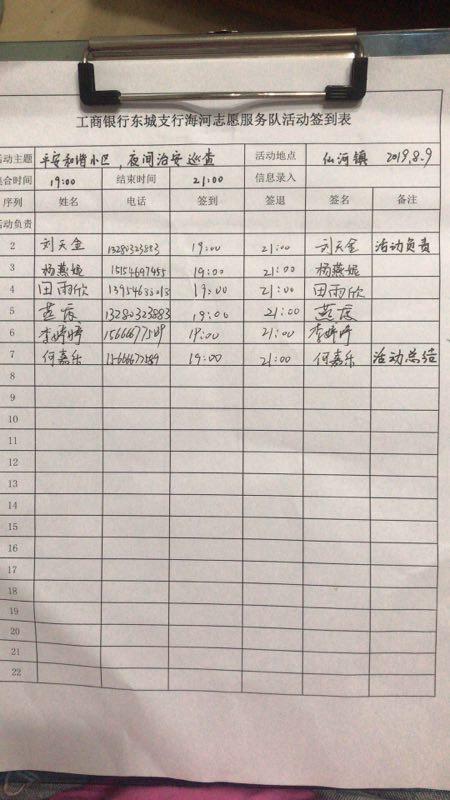 工商银行东城支行海河志愿服务队活动签到表
活动主题 平安和谐小区，夜间治安巡查 活动地点 仙河镇 2019.8.9
集合时间 19:00 结束时间 21:00 信息录入
序列 姓名 电话 签到 签退 签名 备注
活动负责
2 刘天金 13280323883 19:00 21:00 刘天金 活动负责
3 杨燕妮 15154697455 19:00 21:00 杨燕妮
4 田雨欣 19:00 21:00 田雨欣
5 13280323883 19:00 21:00
6 李婷婷 19:00 21:00 李婷婷
7 何嘉乐 15666677589 19:00 21:00 何嘉乐 活动总结
8
9
10
11
12
13
14
15
16
17
18
19
20
21
22